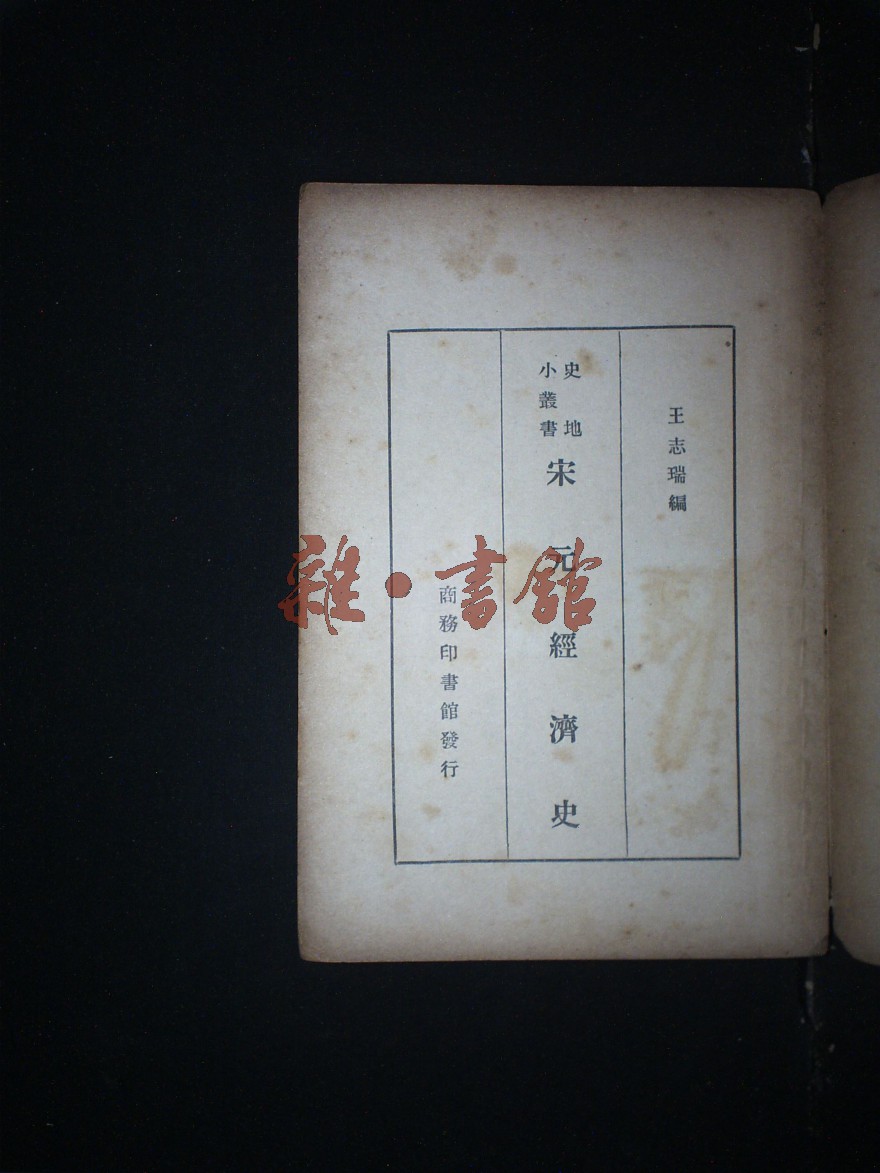 王志瑞編
史地
小叢書
宋元經濟史
商務印書館發行
雜·書館